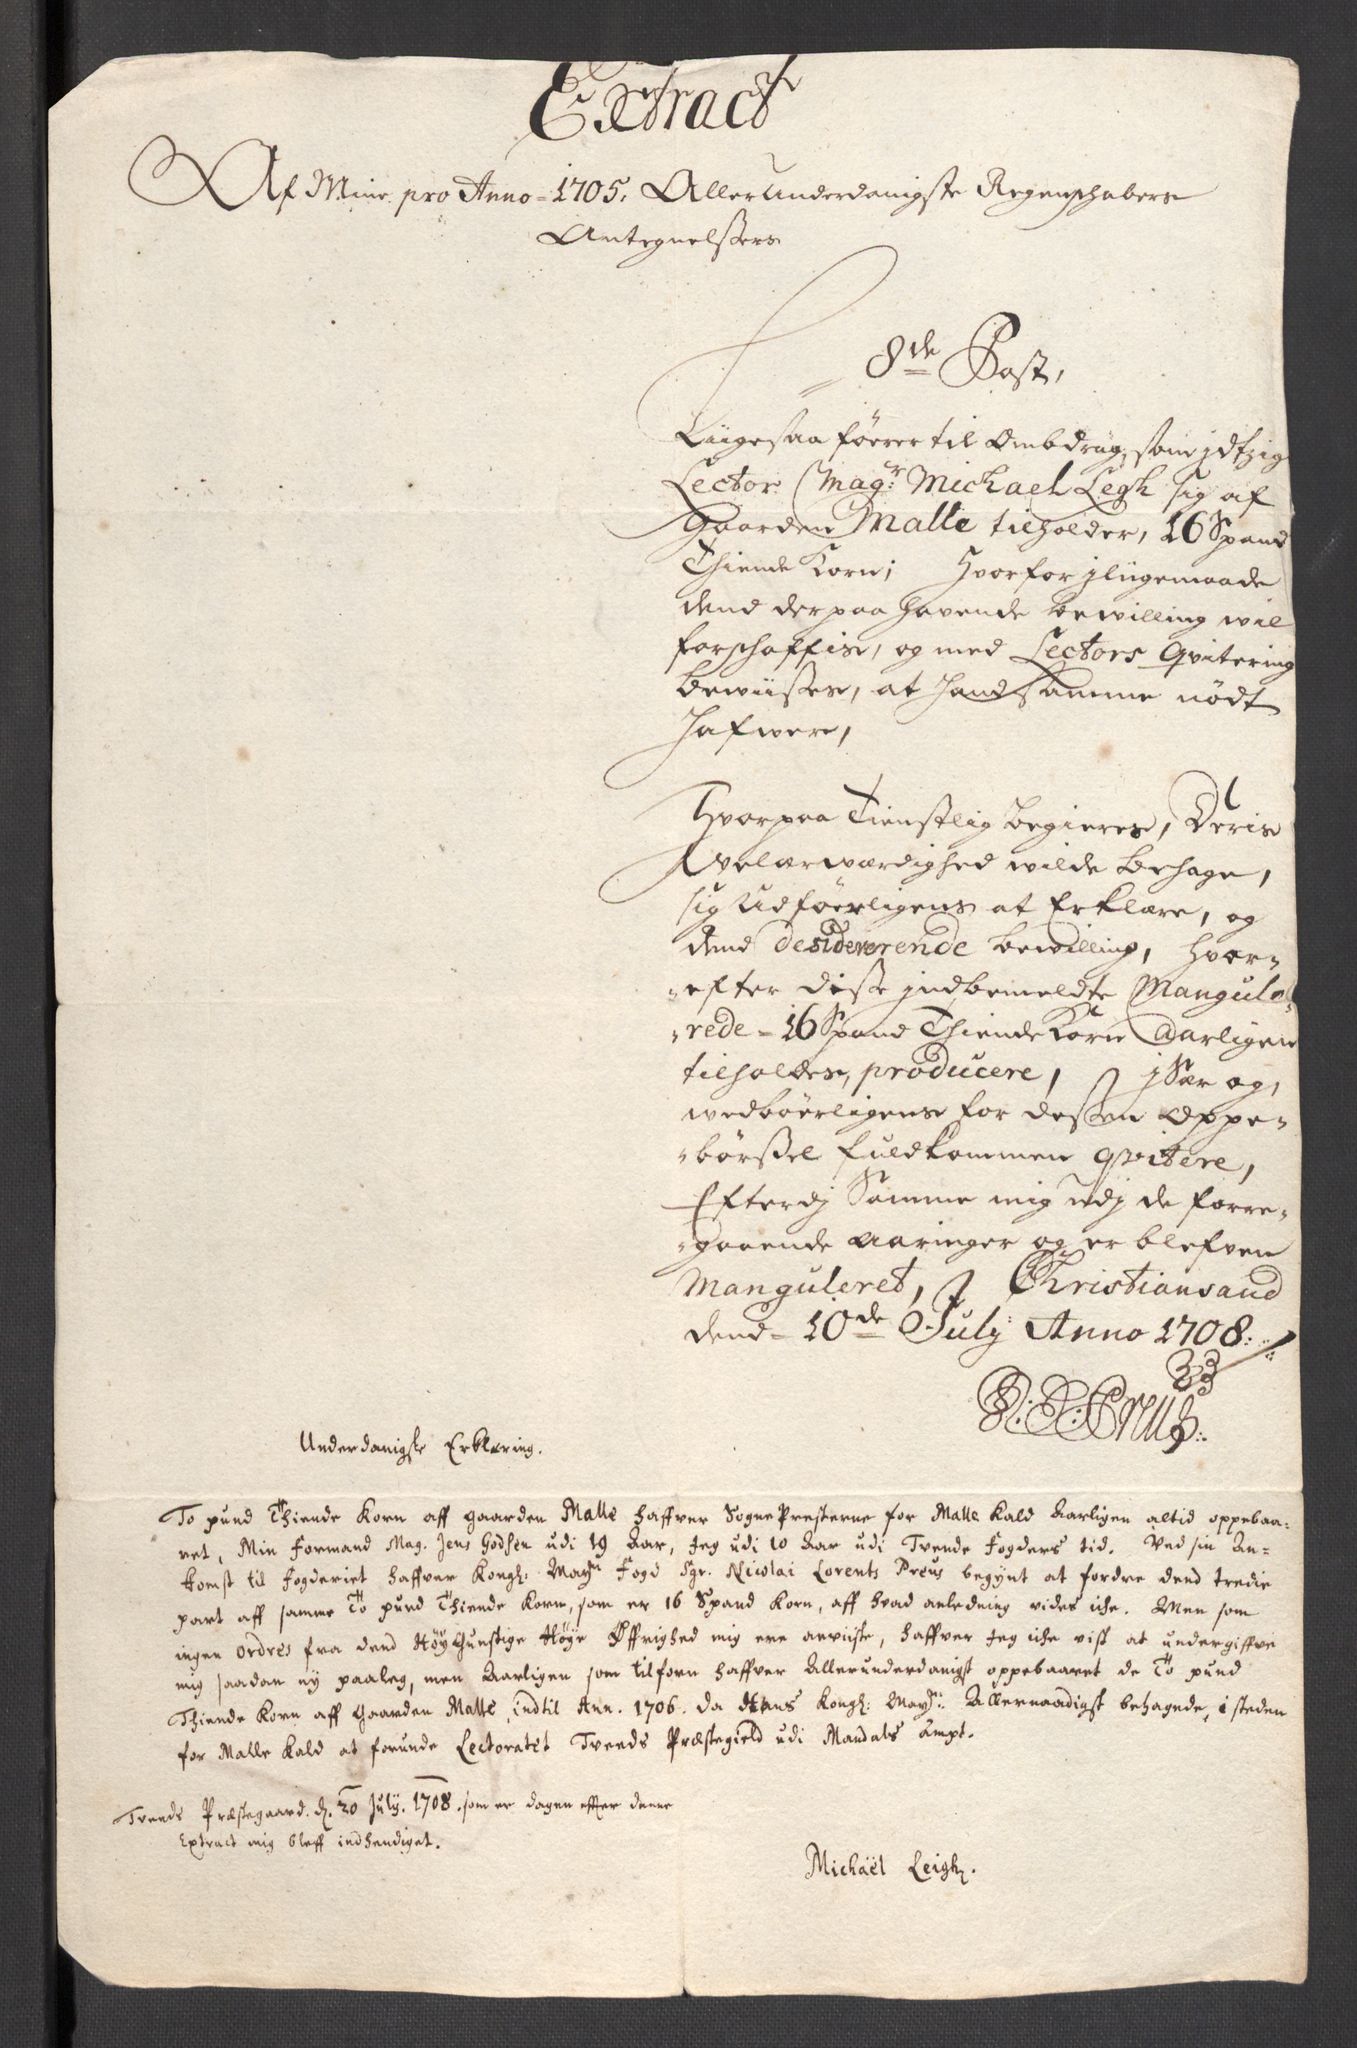 Extract
Af Mine pro Anno = 1705. Allerunderdanigste Regenschabers
Antegnelsers
8de Post,
Liigesaa föerer til Ombdrag, som jdtzig
Lector Magr: Michael Legh sig af
Gaarden Malle tilholder, 16 Spand
Thiende Korn; Hvorfor jliigemaade
dend derpaa havende bewilling wil
forschaffis, og med Lectors Qvitering
bewiisses, at hand samme nödt
hafwer,
Hvorpaa Tienstlig begieres, Deris
Welærwærdighed wilde behage,
sig udföerligens at Erklære, og
dend desidererende bewilling, hvor-
-efter disse jndbemeldte Mangule-
-rede = 16 Spand Thiende Korn Aarligen
tilholdes, producere, jSær og,
wedböerligens for dessen oppe-
-börssel fuldkommen qvitere,
Efterdj Samme mig udj de forre-
-gaaende aaringer og er blefven
Manguleret, Christiansand
dend = 10de July Anno 1708.
N: L: Preus
Underdanigste Erklæring.
To pund Thiende Korn aff gaarden Malle haffver SognePresterne for Malle Kald Aarligen altid oppebaa-
ret, Min Formand Mag. Jens Godsen udi 19 Aar, Jeg udi 10 Aar udi Tvende Fogders tid. Ved sin An-
komst til Fogderiet haffver Kongl: Maytz Fogd Sgr. Nicolai Lorents Preus begynt at fordre dend tredie
part aff samme To pund Thiende Korn, som er 16 Spand Korn, aff hvad anledning vides iche. Men som
ingen Ordres fra dend HøyGunstige Høye Øffrighed mig ere anviiste, haffver Jeg iche vist at undergiffve
mig saadan ny paaleg, men Aarligen som tilforn haffver Allerunderdanigst oppebaaret de To pund
Thiende Korn aff Gaarden Malle, indtil Ann. 1706. da Hans Kongl: Mayst: Allernaadigst behagede, i steden
for Malle Kald at forunde Lectoratet Tveeds Præstegield udi Mandals Ampt.
Tveeds Præstegaard. d. 20 July. 1708. som er dagen effter denne
Extract mig bleff indhendiget.
Michaël Leigh.